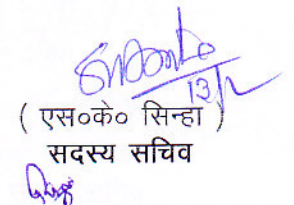 13/2
( एस०के० सिन्हा )
सदस्य सचिव